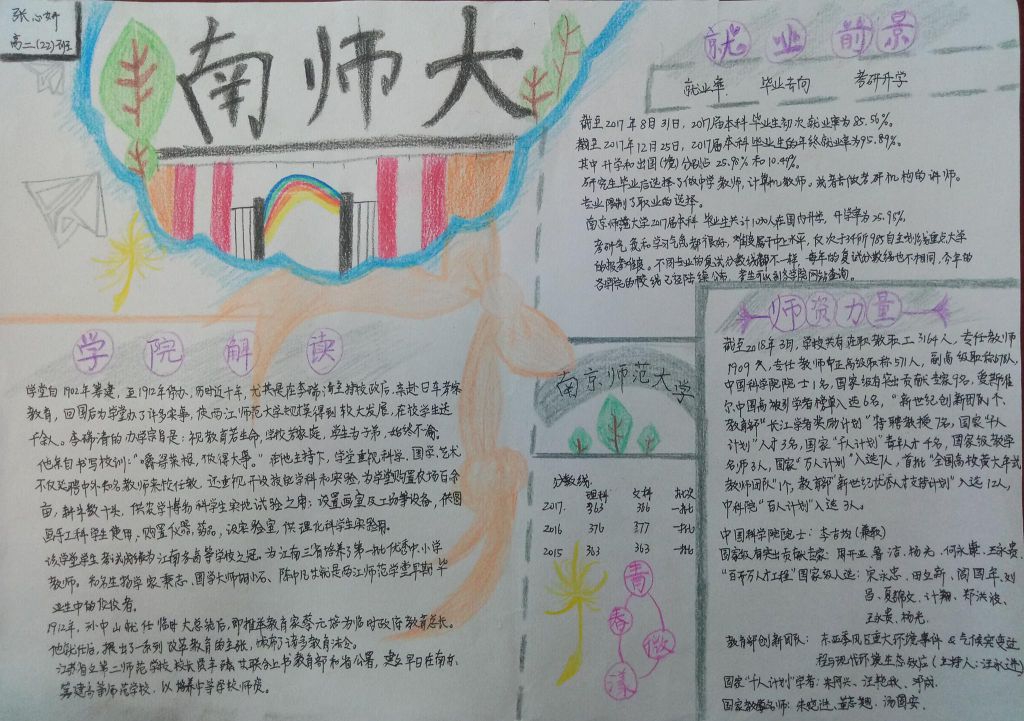 张心妍
高二(22)班
南师大
就业前景
就业率 毕业去向 考研升学
截至2017年8月31日，2017届本科毕业生初次就业率为85.56%。
截至2017年12月25日，2017届本科毕业生的年终就业率为95.89%。
其中升学和出国(境)分别占25.90%和10.49%。
研究生毕业后选择了做中学教师，计算机教师，或者去做考研机构的讲师。
专业限制了职业的选择。
南京师范大学2017届本科毕业生共计1000人在国内升学，升学率为25.95%。
考研气氛和学习气氛都很好，难度属于中上水平，仅次于环所985自主划线重点大学
的报考难度。不同专业的复试分数线都不一样，每年的复试分数线也不相同，今年的
各学院的校线已经陆续公布，考生可以到各学院网站查询。
学院解读
学堂自1902年筹建，至1912年停办，历时近十年，尤其是在李瑞清主持校政后，亲赴日本考察
教育，回国后为学堂办了许多实事，使两江师范大学堂得到较大发展，在校学生达
千余人。李瑞清的办学宗旨是：视教育若生命，学校为家庭，学生为子弟，始终不渝。
他亲自书写校训："嚼得菜根，做得大事。"在他主持下，学堂重视科学，国学，艺术
不仅延聘中外知名教师来校任教，还重视开设农学科和实验，为学堂购置农场百余
亩，耕牛数十头，供农学博物科学生实地试验之用；设置画室及工场等设备，供图
画手工科学生使用，购置仪器，药品，设实验室，供理化科学生实验用。
该学堂学生考试成绩为江南各高等学校之冠。为江南三省培养了第一批优秀中小学
教师。知名生物学家秉志、国学大师胡小石、陈中凡先就是两江师范学堂早期毕
业生中的佼佼者。
1912年，孙中山就任临时大总统后，即推举教育家蔡元培为临时政府教育总长。
他就任后，提出了一系列改革教育的主张，颁布了诸多教育法令。
江苏省立第二师范学校校长贾丰臻等联名上书教育部和省公署，建立早日在南京
筹建高等师范学校，以培养中等学校师资。
南京师范大学
分数线
理科 文科 批次
2017. 363 366 一批
2016 376 377 一批
2015 363 363 一批
青春微漾
师资力量
截至2018年3月，学校共有在职教职工3164人，专任教师
1909人，专任教师有正高级职称571人，副高级职称678人，
中国科学院院士1名，国家级有突出贡献专家9名，爱斯维
尔中国高被引学者榜单入选6名，"新世纪创新团队1个，
教育部"长江学者奖励计划"特聘教授7名，国家"千人
计划"人才3名，国家"千人计划"青年人才4名，国家级教学
名师3人，国家"万人计划"入选7人，首批"全国高校黄大年式
教师团队"1个，教育部"新世纪优秀人才支持计划"入选12人，
中科院"百人计划"入选3人。
中国科学院院士：李吉均(兼职)
国家级有突出贡献专家 周开亚 鲁洁、杨光、何永康、王永贵、
"百千万人才工程"国家级人选：宋永忠、田立新、闾国年、刘
昌、夏锦文、计翔、郑洪波、
王永贵、杨光。
教育部创新团队： 东亚季风区重大环境事件&气候突变过
程与现代环境生态效应(主持人：汪永进)
国家"千人计划"学者：朱阿兴、汪艳秋、邓成、
国家教学名师：朱晓进、董志翘、汤国安、